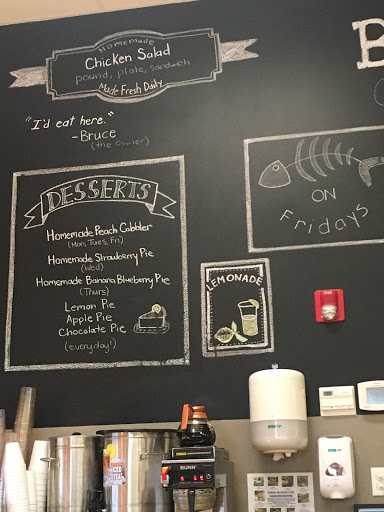 Homemade
Chicken Salad
pound, plate, sandwich
Made Fresh Daily
"I'd eat here."
-Bruce
(the owner)
DESSERTS
Homemade Peach Cobbler
(Mon, Tues, Fri)
Homemade Strawberry Pie
(Wed)
Homemade Banana Blueberry Pie
(Thurs)
Lemon Pie
Apple Pie
Chocolate Pie
(everyday!)
B
ON
Fridays
LEMONADE
ICED
TEA
BUNN